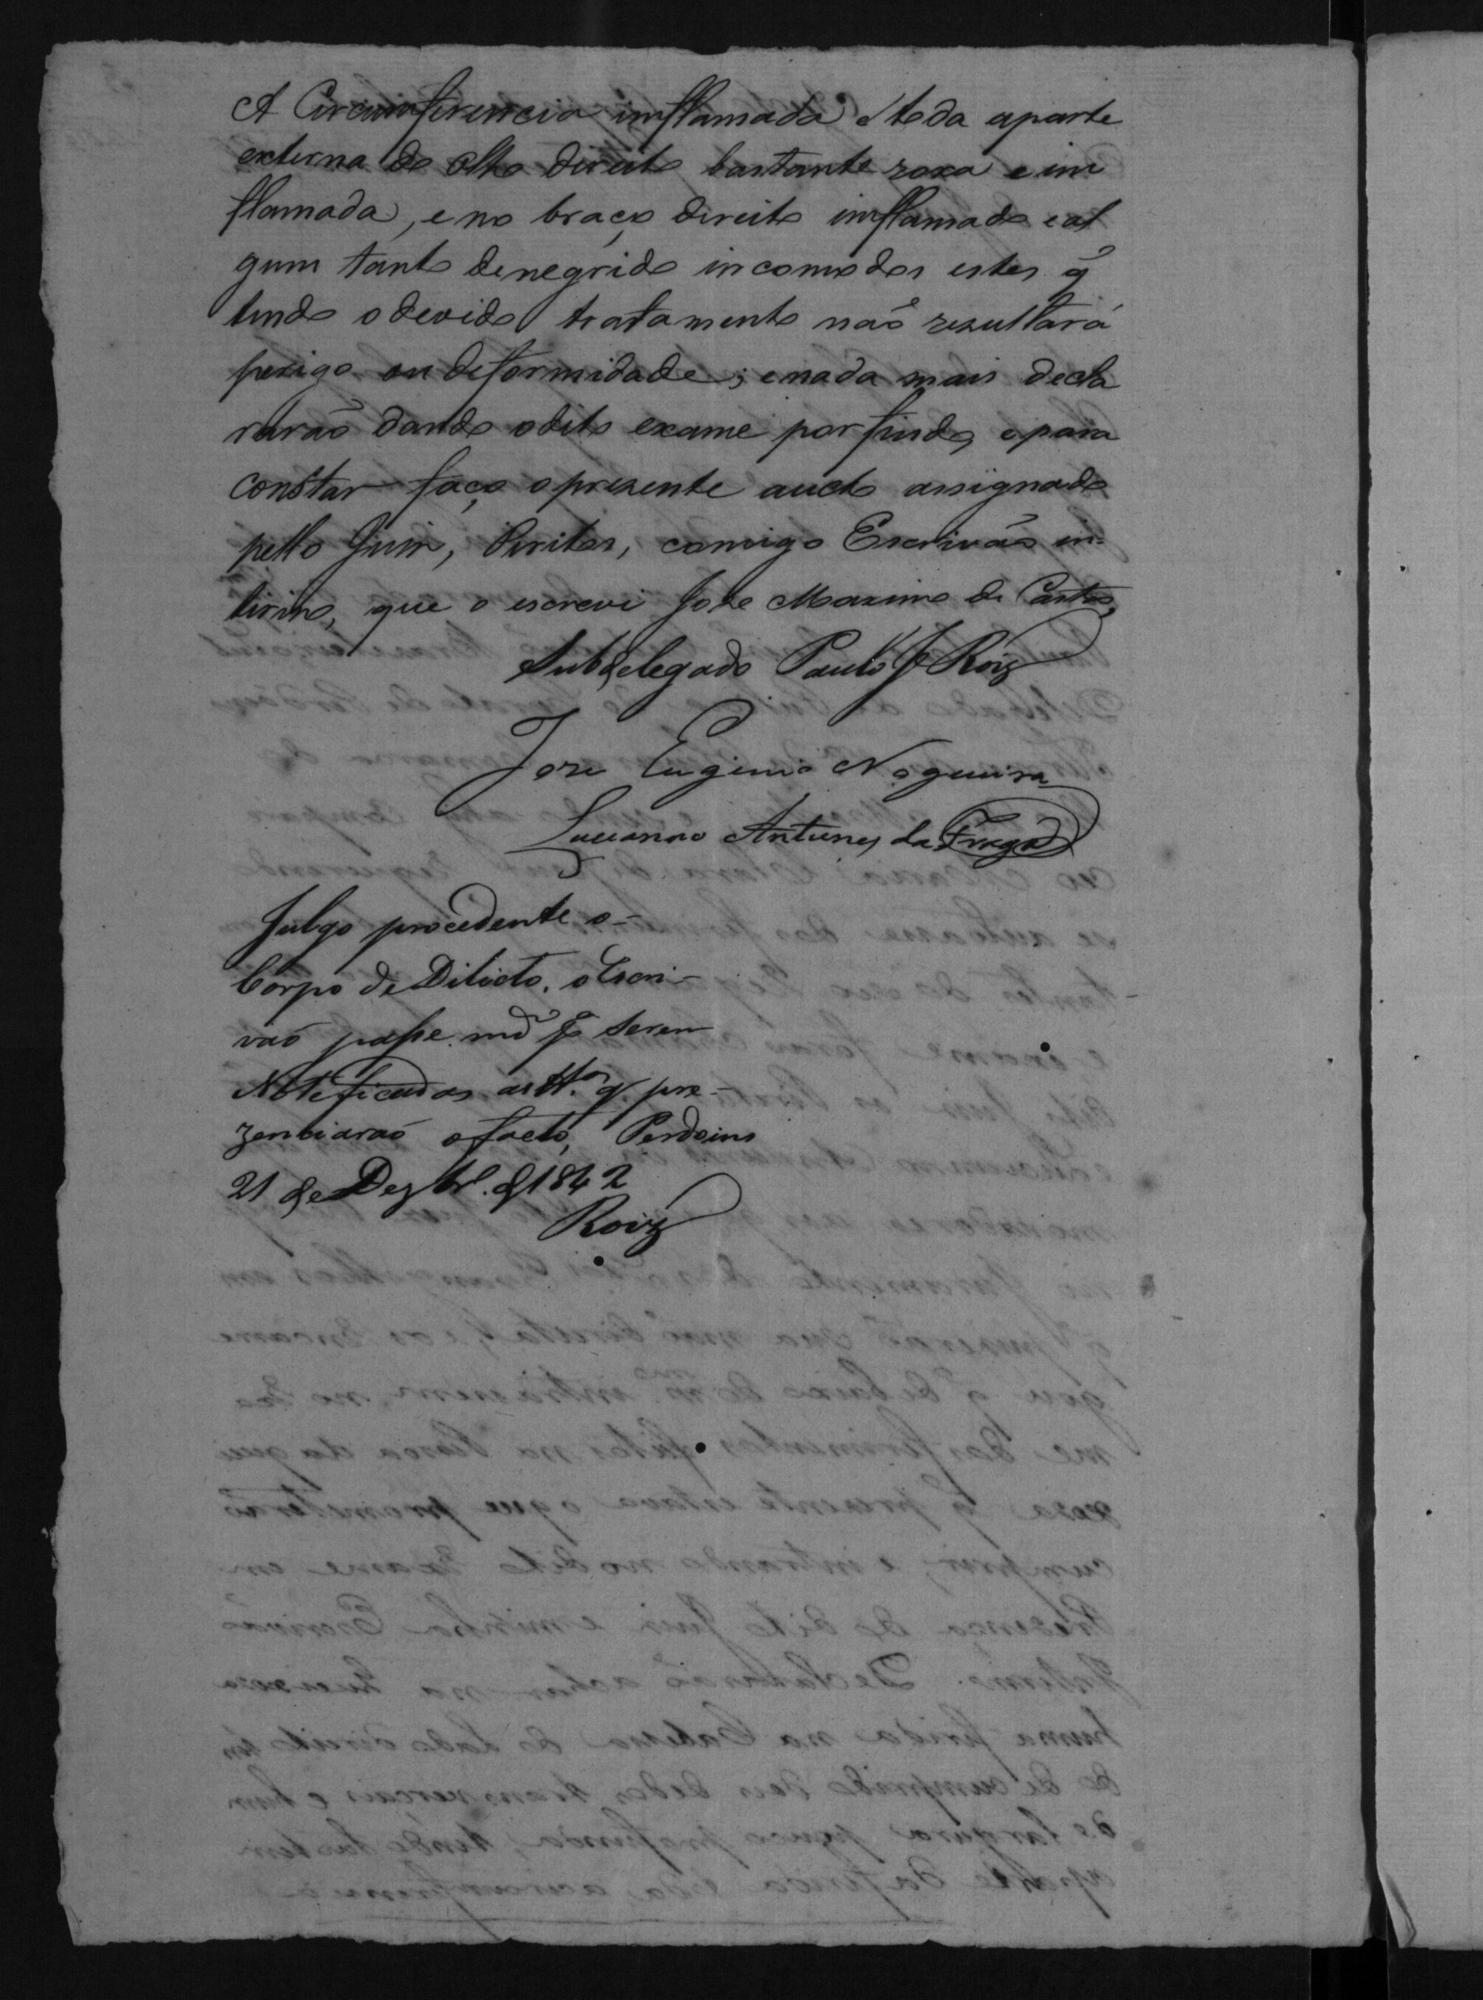 A Circumfirencia imflamada e toda aparte
externa do olho direito bastante roxa e im
flamada, e no braço direito imflamado e al
gum tanto denegrido incomodos estes q̃
tendo o devido tratamento naõ rezultará
perigo ou deformidade; enada mais decla
raraõ dando odito exame porfindo, epara
constar faço oprezente aucto assignado
pello Juis, Piritos, comigo Escrivaõ in=
tirino, que o escrevi Joze Maximo de Castro,
Subdelegado Paulo Je Roiz
Jozé Eugenio Nogueira
Lucianno Antunes da Fraga
Julgo procedente o-
Corpo de Dilicto. o Escri-
vaõ passe md.º pª serem
Noteficadas as tt.as q̃ pre-
zenciaraõ ofacto, Perdoins
21 de Dezbr.º d 1842
Roiz